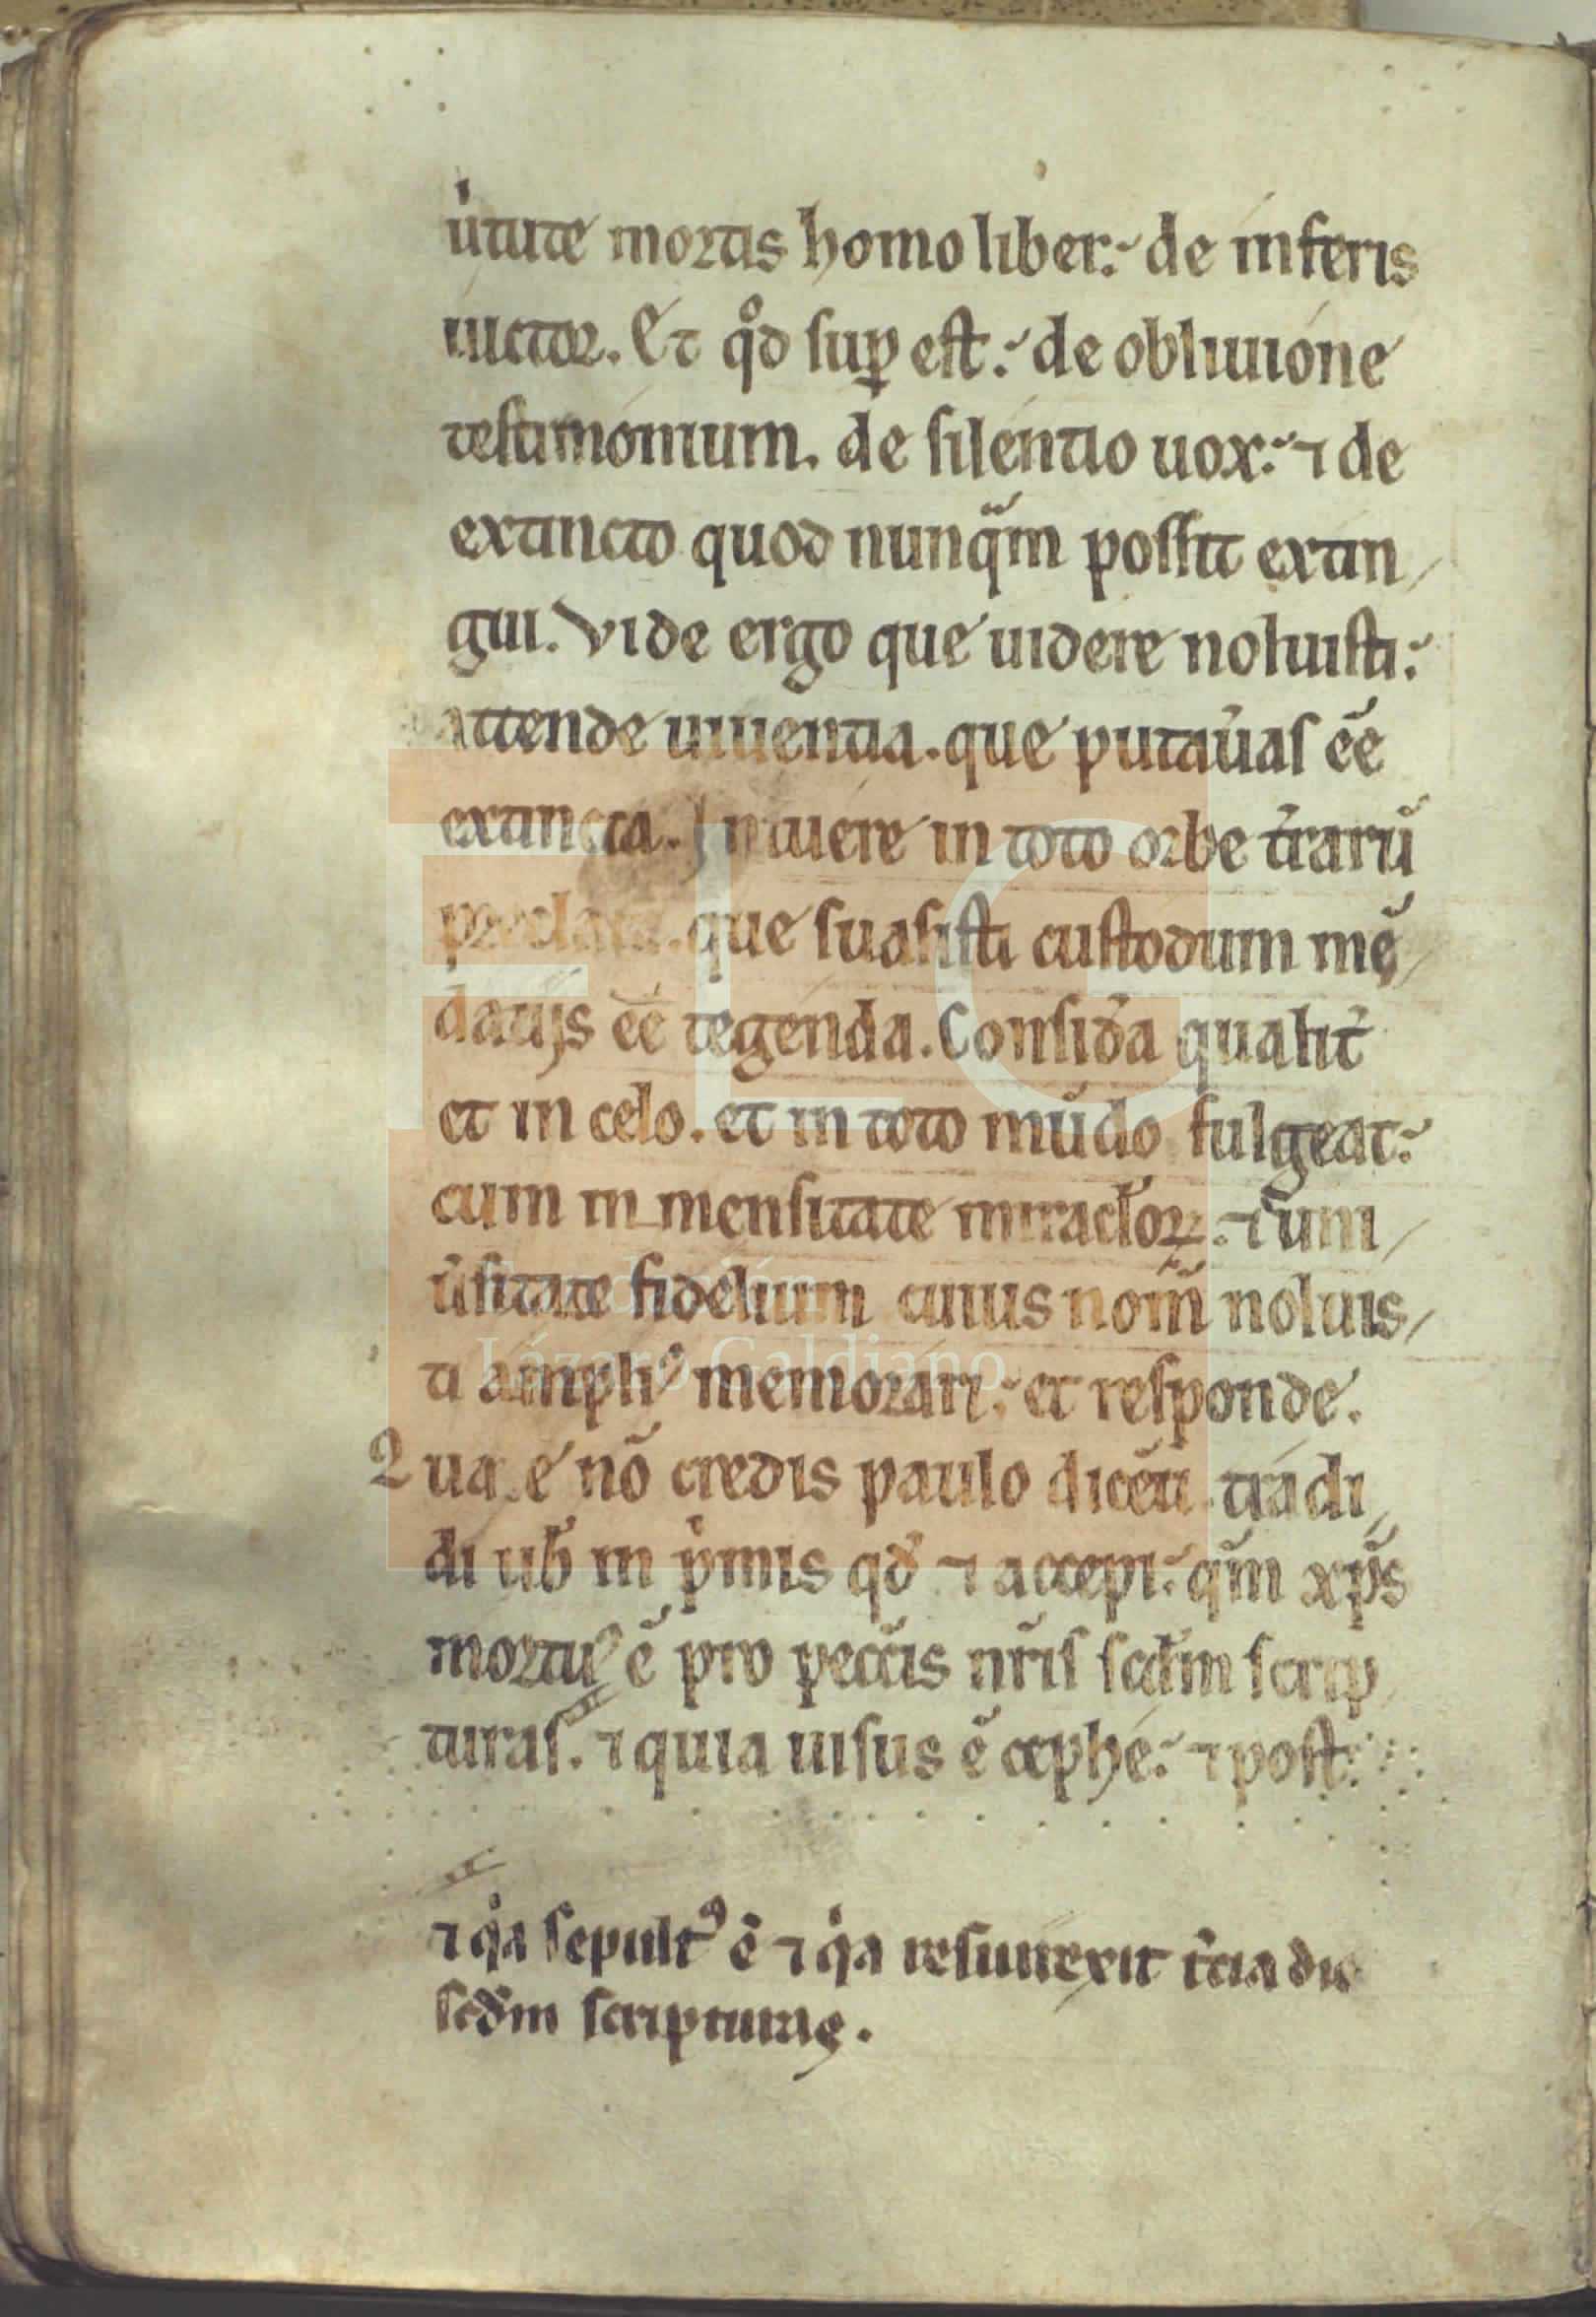 u̍tute mortis homo liber: de inferis
uictor. Et qͦd suꝑ est: de obliuione
testimonium. de silentio uox: ⁊ de
extincto quod nunq̃m possit extin/
gui. Vide ergo que uidere noluisti:
attende uiuentia. que putau̾as ēē
extincta. Intuere in toto orbe t̾rarū
preclara. que suasisti custodum mē/
datijs ēē tegenda. Consid̾a qualit̾
et in celo. et in toto mūdo fulgeat:
cum in mensitate miracl̾oꝝ. tum
u̾sitate fidelium cuius nom̄ noluis/
ti ampliꝰ memorari: et responde.
Quare nō credis paulo dicēti. tradi/
di uob̾ in p̍mis qd̾ ⁊ accepi: qm̄ xp̄s
mortuꝰ ē pro pecc̄is nr̄is scd̾m scrip/
turas. ⁊ quia uisus ē cephe: ⁊ post
⁊ q̍a sepultꝰ ē ⁊ q̍a resurrexit t̾cia die
scd̾m scripturas.
FLG
Lázaro Galdiano